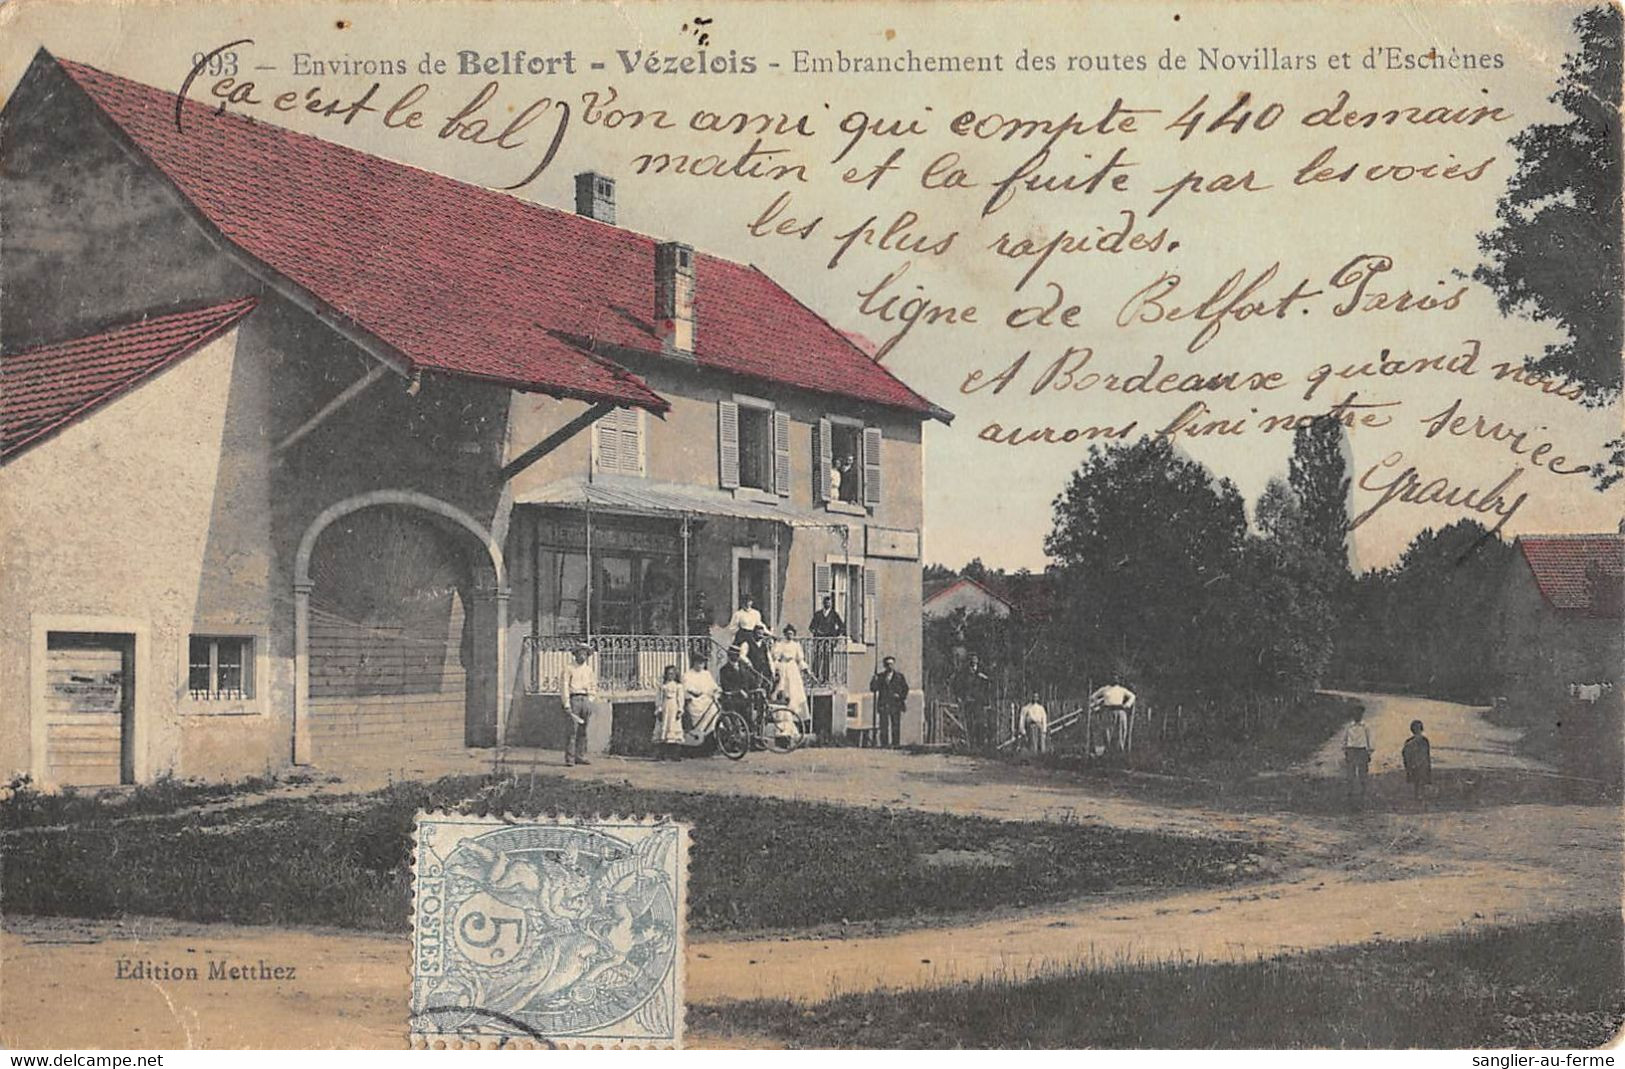 993 — Environs de Belfort - Vézelois - Embranchement des routes de Novillars et d'Eschènes
(ça c'est le bal)
Ton ami qui compte 440 demain
matin et la fuite par les voies
les plus rapides.
ligne de Belfort. Paris
et Bordeaux quand nous
aurons fini notre service
Graulry
POSTES
5c
Edition Metthez
sanglier-au-ferme